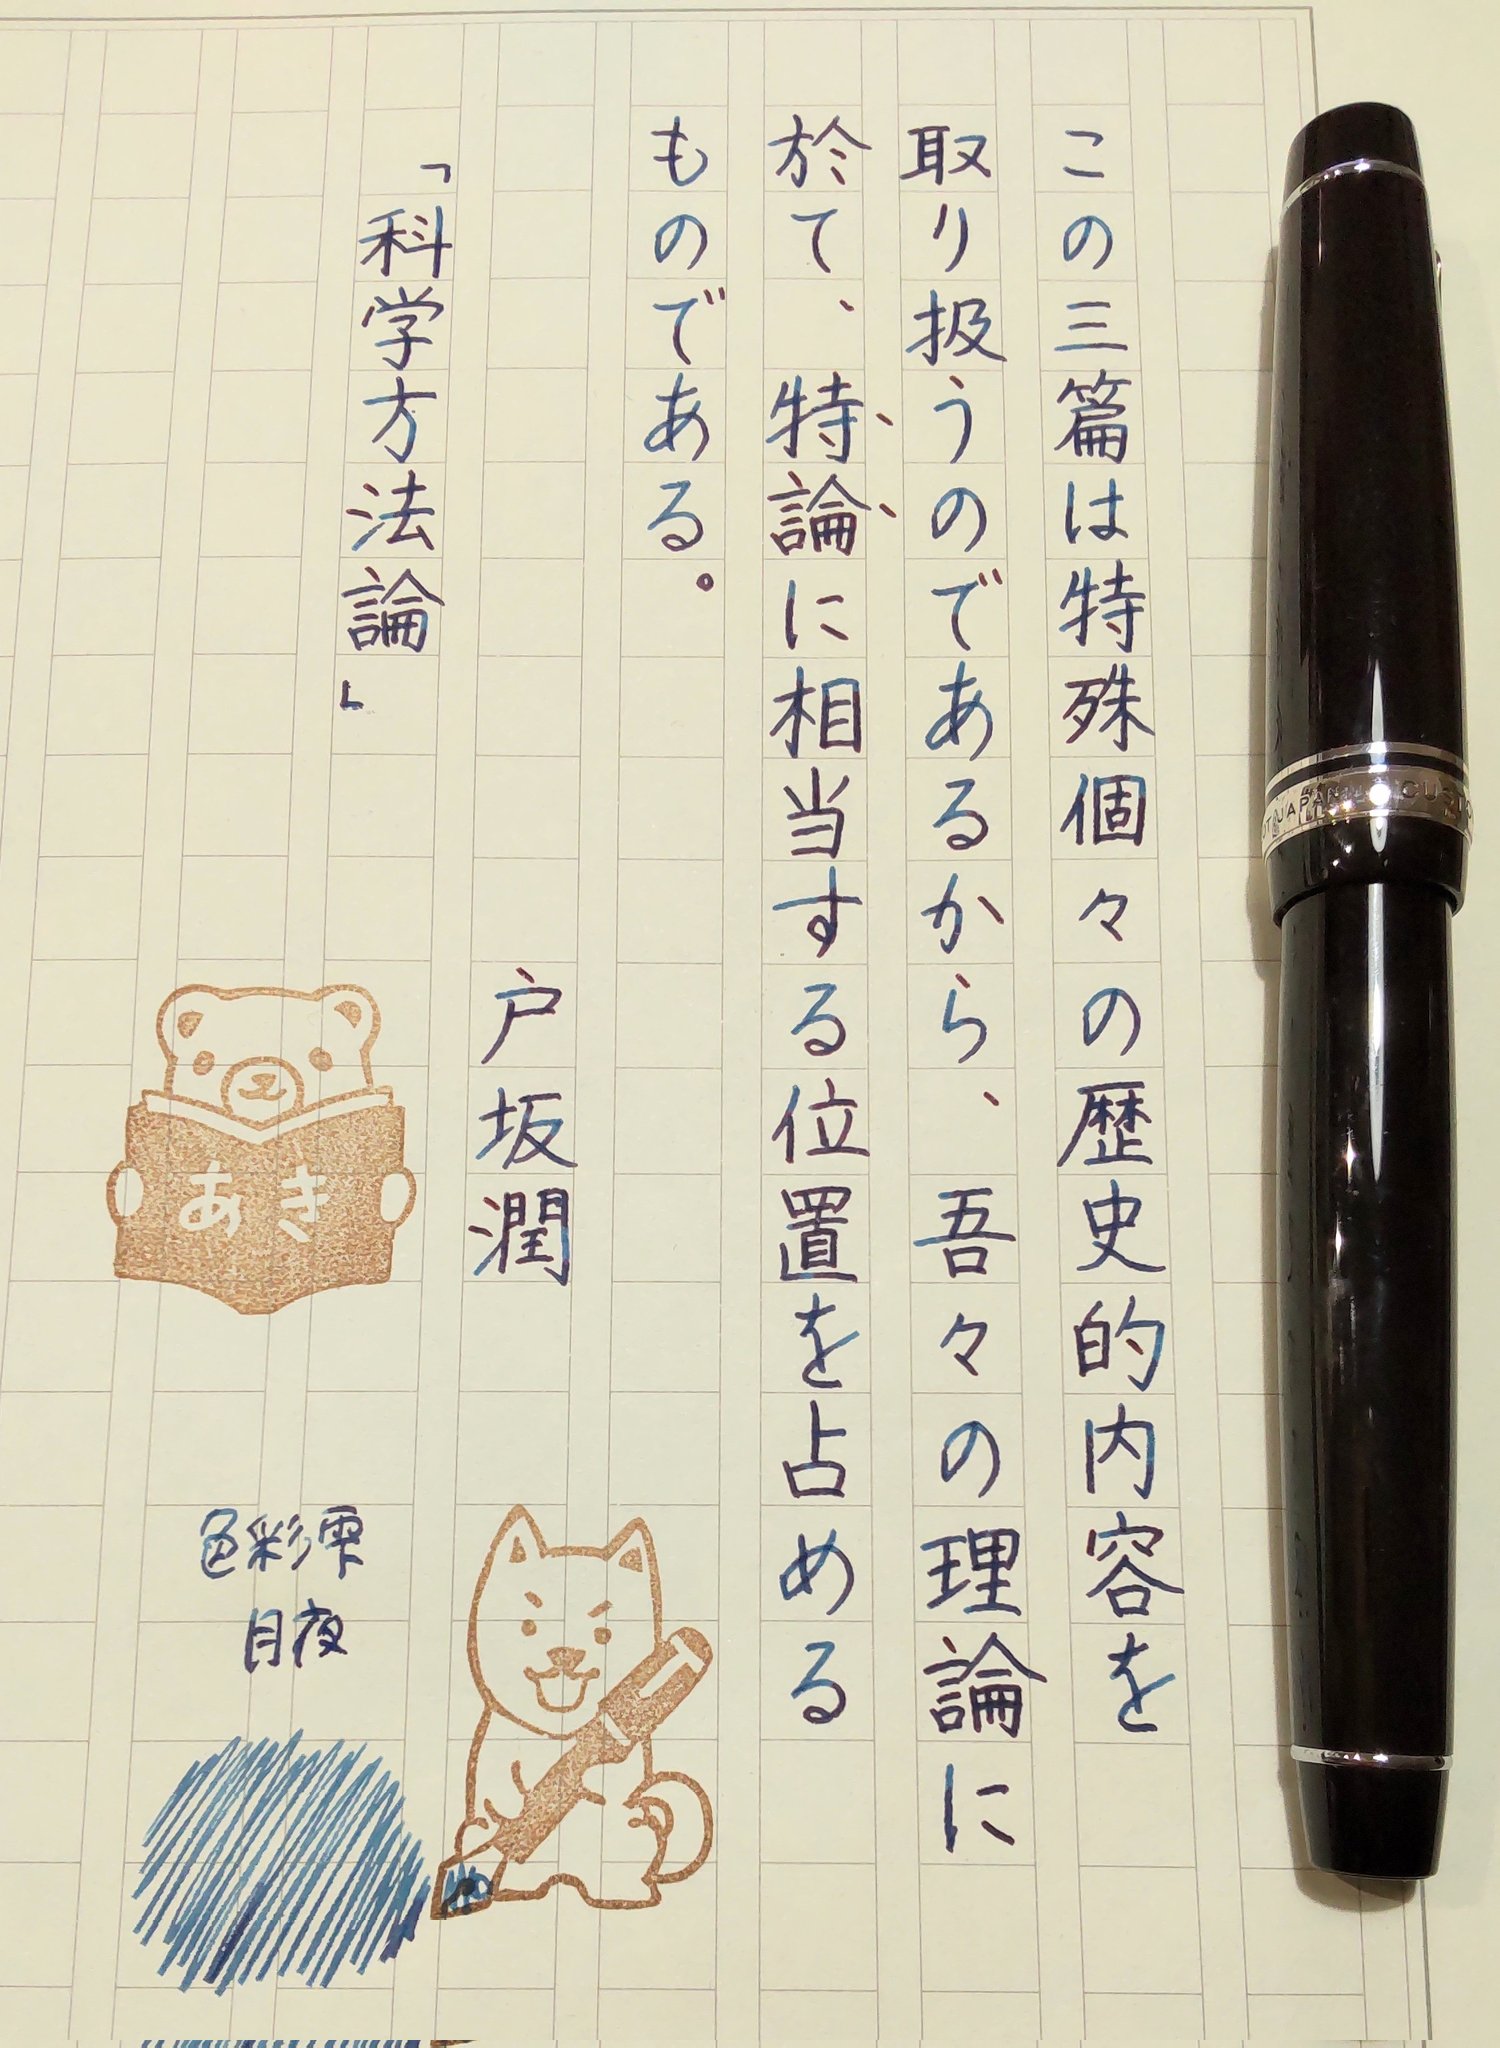 この三篇は特殊個々の歴史的内容を
取り扱うのであるから、吾々の理論に
於て、特論に相当する位置を占める
ものである。
戸坂潤
「科学方法論」
あき
色彩雫
月夜
JAPAN